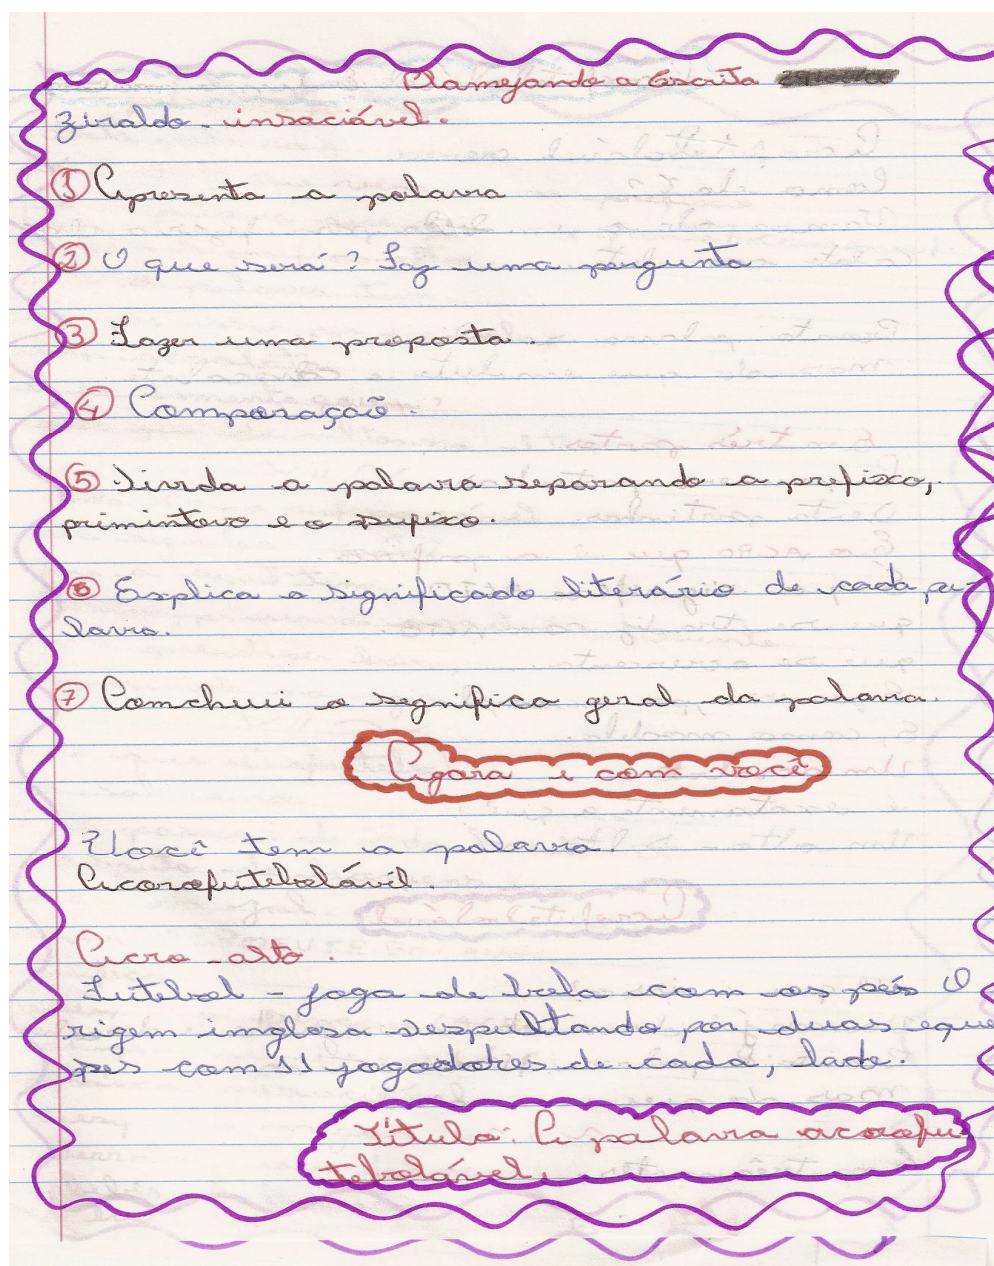 Planejando a Escrita
Ziraldo. insaciável.
① Apresenta a palavra
② O que será? Faz uma pergunta
③ Fazer uma proposta.
④ Comparaçaõ.
⑤ Divida a palavra separando a prefixo,
primintovo e o sufixo.
⑥ Explica o significado literário de cada pa-
lavra.
⑦ Comchuui o segnifica geral da palavra.
Agora é com você
Você tem a palavra.
Acorofutebolável.
Acro - alto.
Futebol - joga de bola com os pés O
rigem imglosa despultando por duas eque
pes com 11 jogadores de cada, lado.
Título: A palavra acorofu
tebolável.